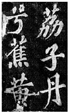 荔子丹
兮蕉黃